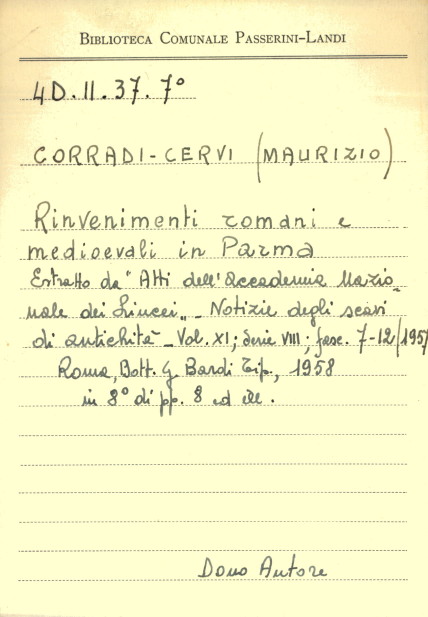 BIBLIOTECA COMUNALE PASSERINI-LANDI
4D.II.37.7°
CORRADI-CERVI (MAURIZIO)
Rinvenimenti romani e
medioevali in Parma
Estratto da "Atti dell'Accademia Nazio-
nale dei Lincei" - Notizie degli scavi
di antichità - Vol. XI; Serie VIII; fasc. 7-12/1957
Roma, Dott. G. Bardi Tip., 1958
in 8° di pp. 8 ed ill.
Dono Autore